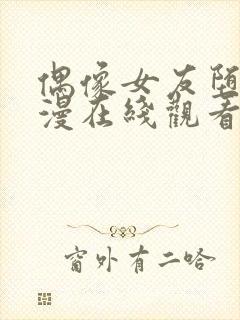 偶像女友堕
漫在綫觀看
窗外有二哈